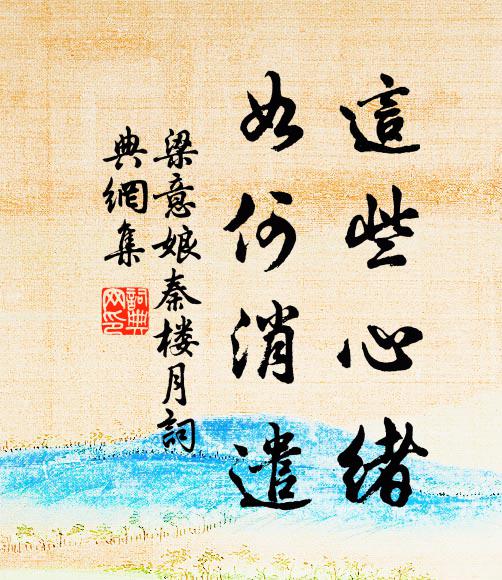 這些心緒
如何消遣
梁意娘秦楼月詞
典網集
詞典
网印